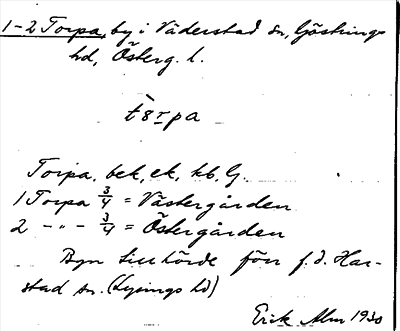 1-2 Torpa, by i Väderstad sn, Göstrings
hd, Österg. l.
Torpa, bek, ek, kb, G.
1 Torpa 3/4 = Västergården
2 -"- 3/4 = Östergården
Byn tillhörde förr f.d. Har-
stad sn. (Lysings hd)
Erik Alm 1930